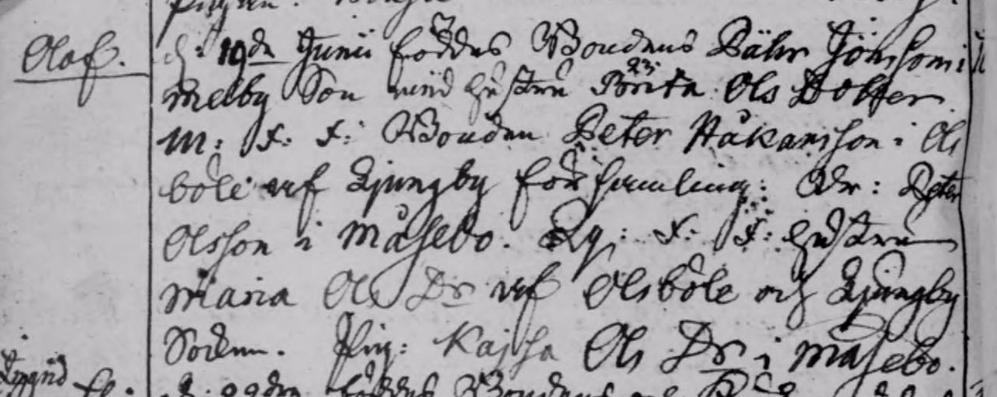 Olaf.
d: 19de Junii föddes Bondens Pähr Jönssons i
melby Son med hustru Brita Ols Dotter
M: F: F: Bonden Peter Håkansson i Ols
böle af Ljungby församling: Dr: Peter
Olsson i Måsebo. Qv: F: F: hustru
Maria Ols Dr af Olsböle och Ljungby
Sockn. Pig: Kajsa Ols Dr i Måsebo.
Ingrid
föddes Bondens